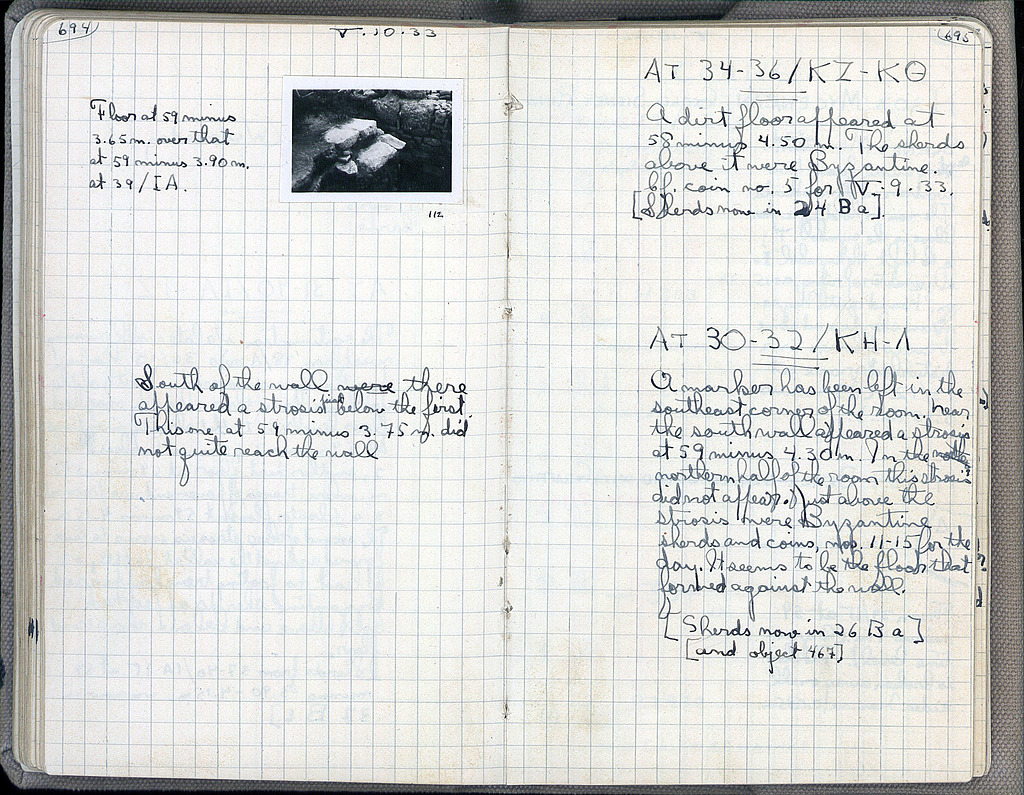 694
V.10.33
Floor at 59 minus
3.65 m. over that
at 59 minus 3.90 m.
at 39/IA.
112
South of the wall were there
appeared a strosis just below the first.
This one at 59 minus 3.75 m. did
not quite reach the wall
695
AT 34-36/KZ-KΘ
A dirt floor appeared at
58 minus 4.50 m. The sherds
above it were Byzantine.
Cf. coin no. 5 for V.9.33.
[Sherds now in 24 B a].
AT 30-32/KH-Λ
A marker has been left in the
southeast corner of the room. Near
the south wall appeared a strosis
at 59 minus 4.30 m. In the
northern half of the room this strosis
did not appear. Just above the
strosis were Byzantine
sherds and coins, nos. 11-15 for the
day. It seems to be the floor that
formed against the wall.
[Sherds now in 26 B a]
[and object 467]